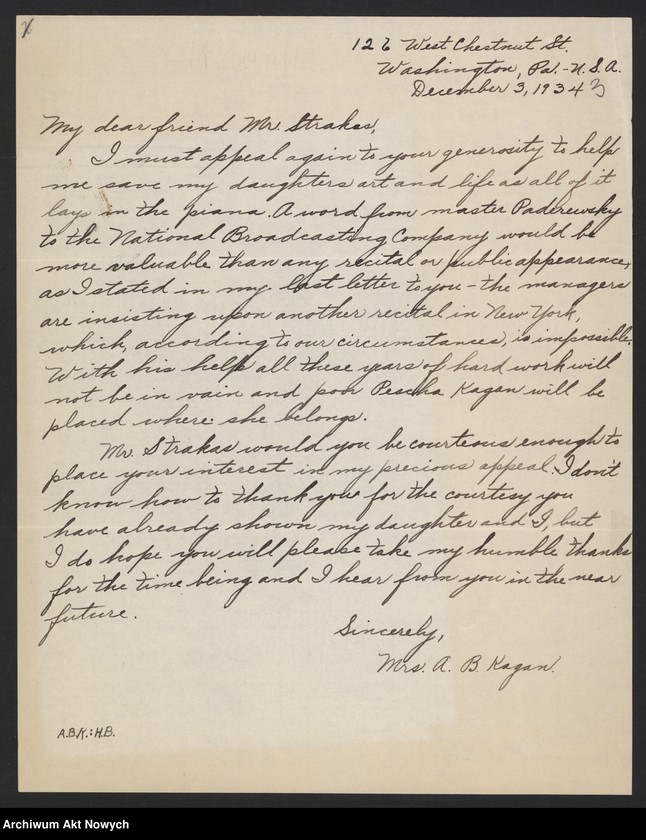 126 West Chestnut St.
Washington, Pa. - U.S.A.
December 3, 1934 3
My dear friend Mr. Strakas,
I must appeal again to your generosity to help
me save my daughters art and life as all of it
lays in the piana. A word from master Paderewsky
to the National Broadcasting Company would be
more valuable than any recital or public appearance,
as I stated in my last letter to you - the managers
are insisting upon another recital in New York,
which, according to our circumstances, is impossible.
With his help all these years of hard work will
not be in vain and poor Pescha Kagan will be
placed where she belongs.
Mr. Strakas would you be courteous enough to
place your interest in my precious appeal. I don't
know how to thank you for the courtesy you
have already shown my daughter and I, but
I do hope you will please take my humble thanks
for the time being and I hear from you in the near
future.
Sincerely,
Mrs. A. B. Kagan.
A.B.K.:H.B.
Archiwum Akt Nowych